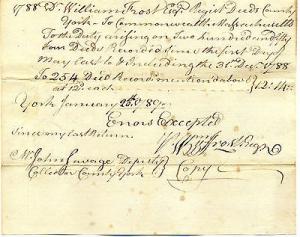 1788 Dr. William Frost Esqr. Regist Deeds County
York - To Commonwealth Massachusetts
To the Duty arising on Two hundred and fifty
four Deeds Recorded since the first Day of
May last to & Including the 31st Decr. 1788
To 254 Deed Record mention'd above } 12:14:
at 12d each
York January 25th 89
Errors Excepted
since my last Return.
Wm Frost Regr
Mr. John Savage Deputy } Copy
Collector County York